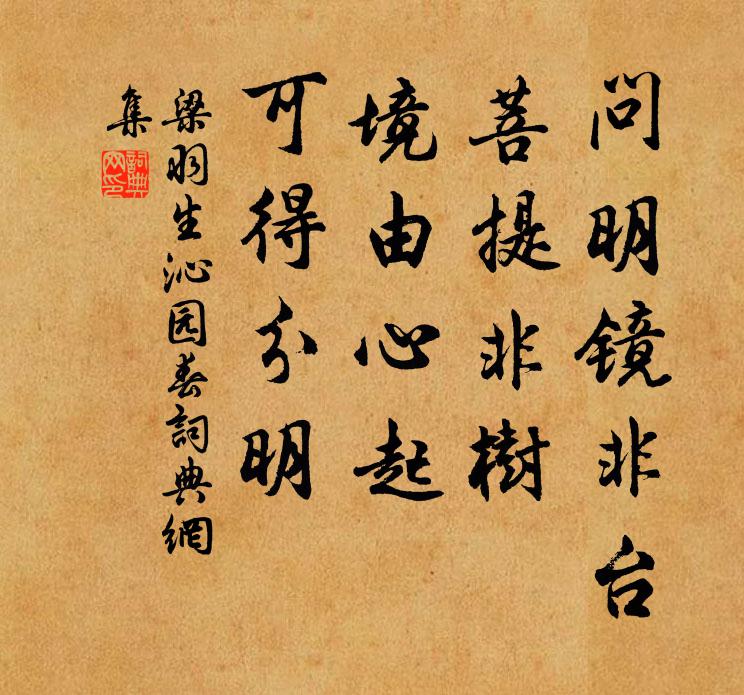 问明镜非台
菩提非樹
境由心起
可得分明
梁羽生沁园春詞典網
集
詞典网印